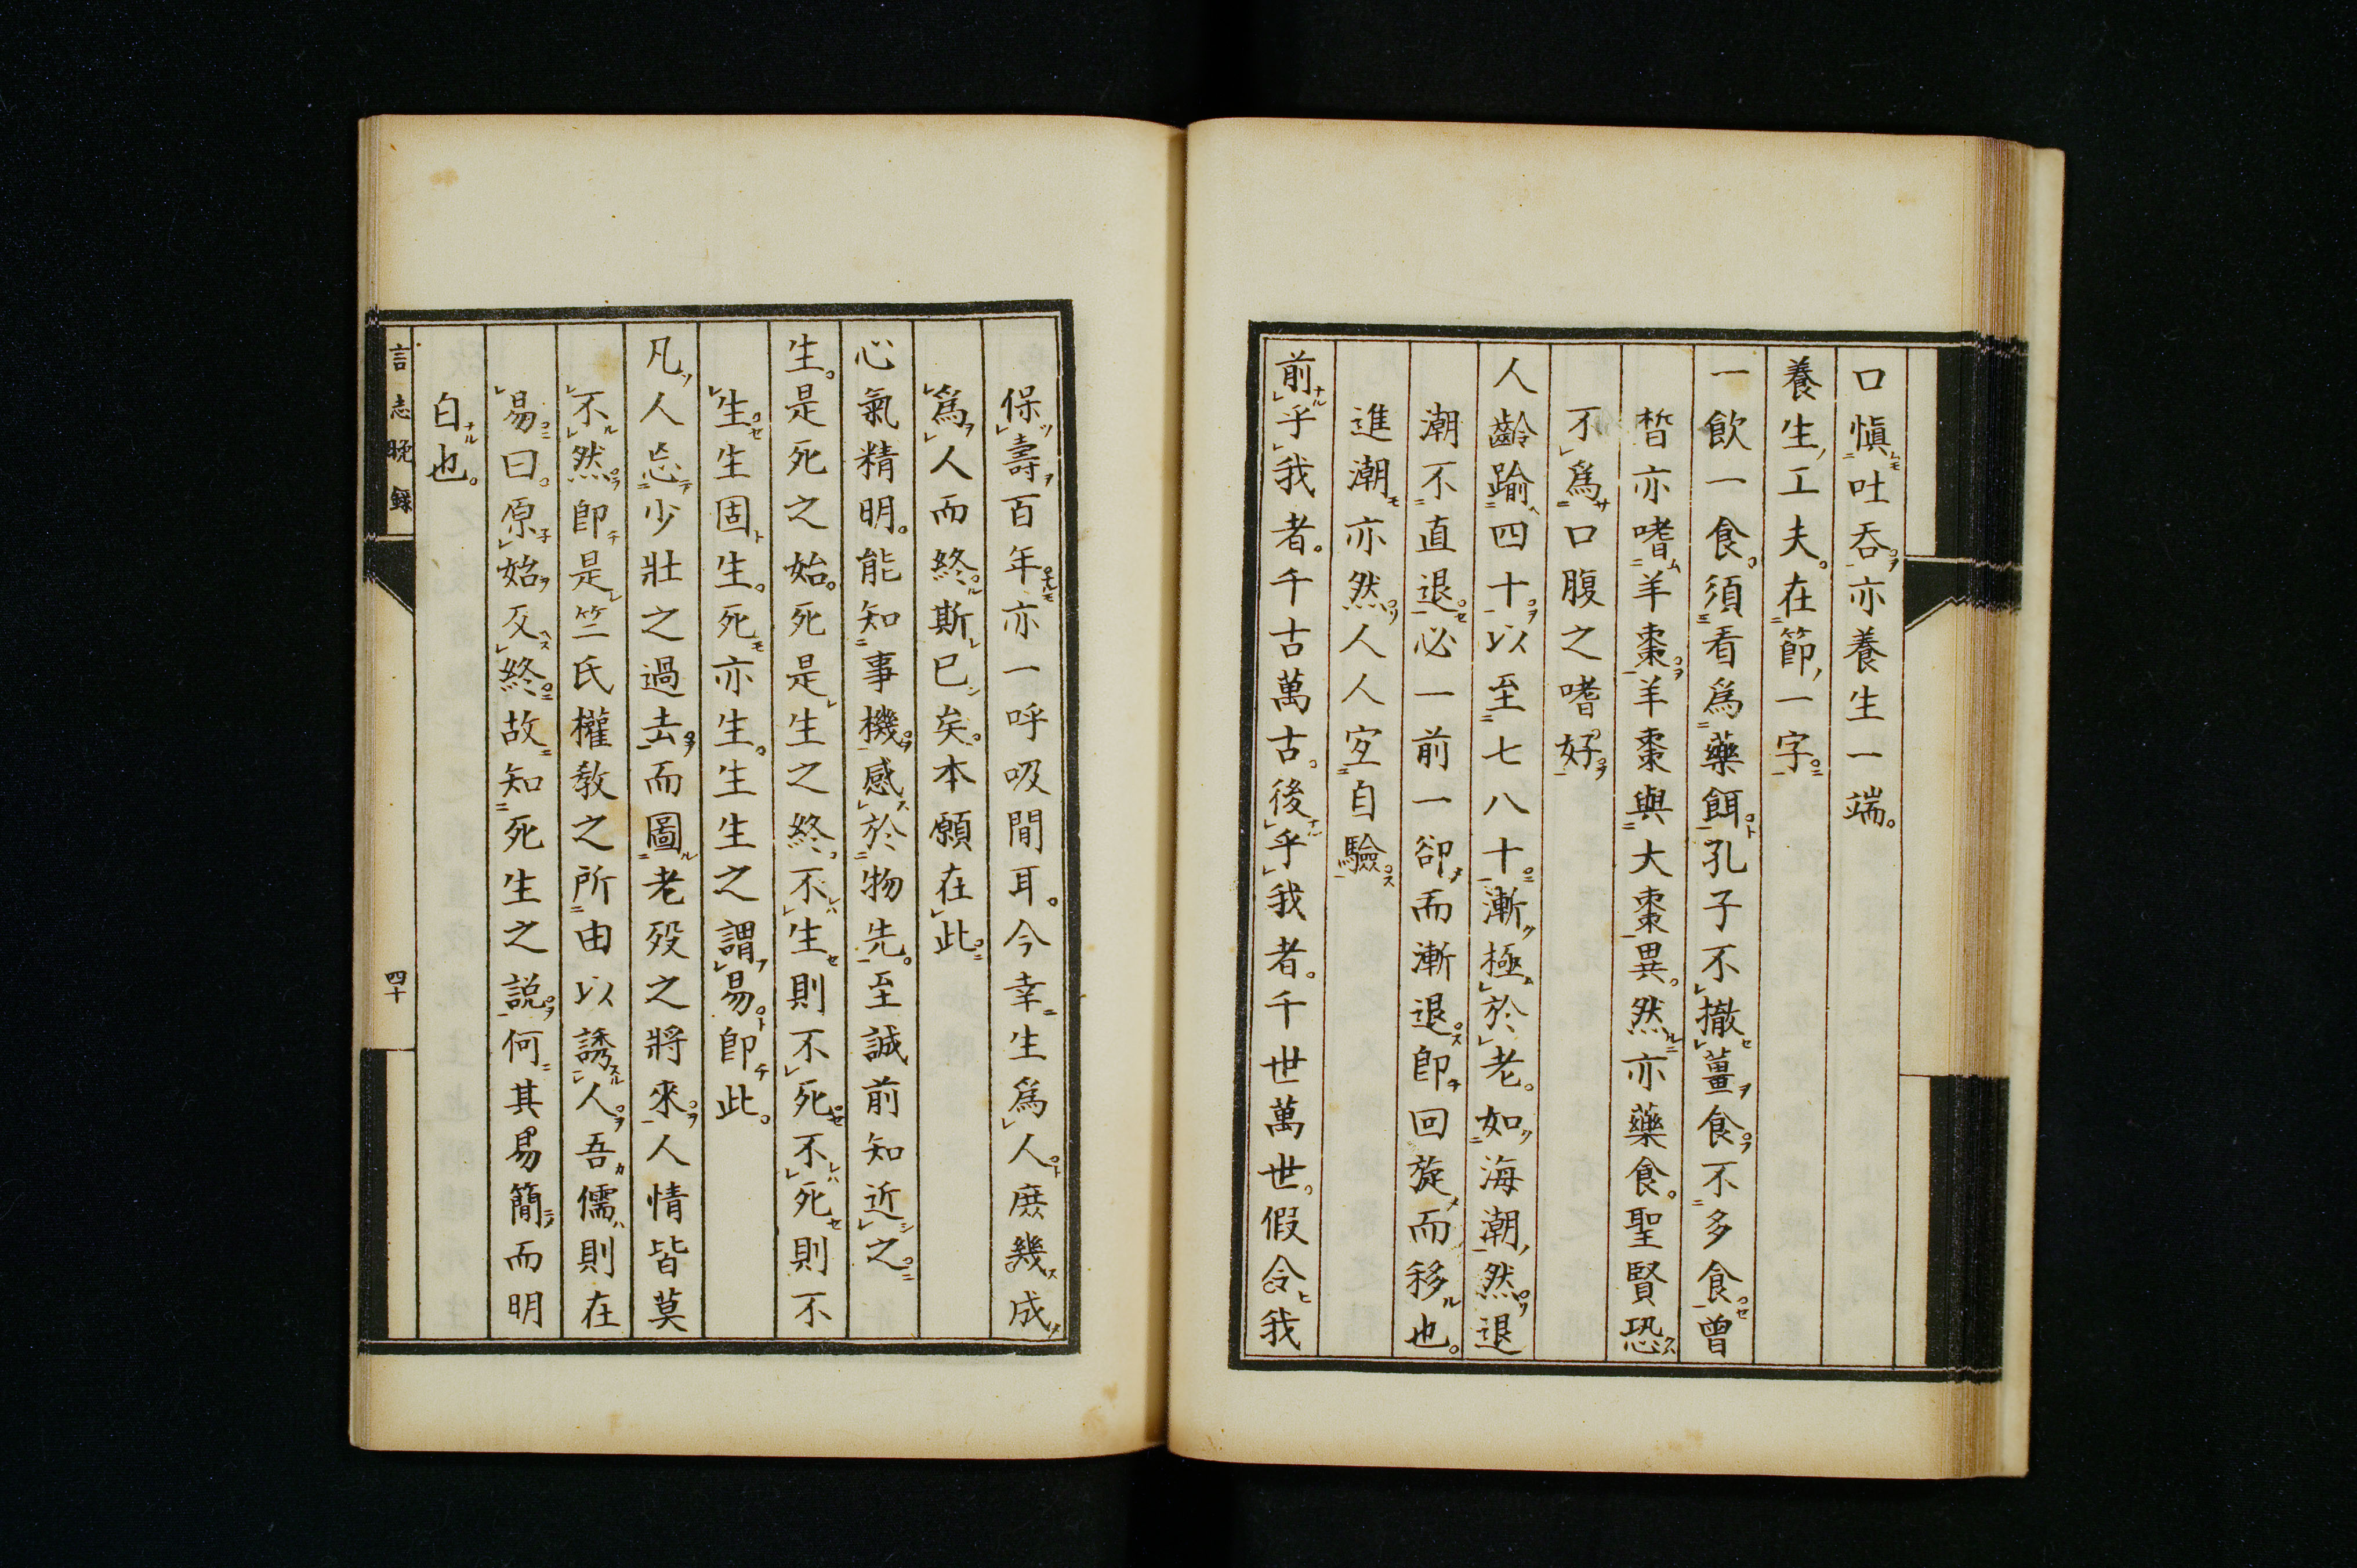 口愼吐呑亦養生一端。
養生工夫。在節一字。
一飮一食。須看爲藥餌。孔子不撤薑食。不多食。曾
晳亦嗜羊棗。羊棗與大棗異。然亦藥食。聖賢恐
不爲口腹之嗜好。
人齡踰四十。以至七八十。漸極於老。如海潮然。退
潮不直退。必一前一卻而漸退。卽回旋而移也。
進潮亦然。人人宜自驗。
前乎我者。千古萬古。後乎我者。千世萬世。假令我
保壽百年。亦一呼吸間耳。今幸生爲人。庶幾成
爲人而終。斯已矣。本願在此。
心氣精明。能知事機。感於物先。至誠前知近之。
生。是死之始。死是生之終。不生則不死。不死則不
生。生固生。死亦生。生生之謂易。卽此。
凡人忘少壯之過去。而圖老歿之將來。人情皆莫
不然。卽是竺氏權敎之所由以誘人。吾儒則在
易曰。原始反終。故知死生之說。何其易簡而明
白也。
言志晚錄
四十